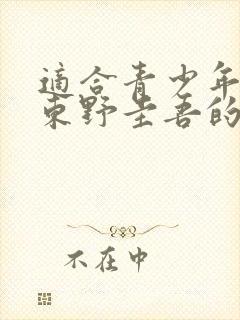 適合青少年
東野圭吾的
不在中